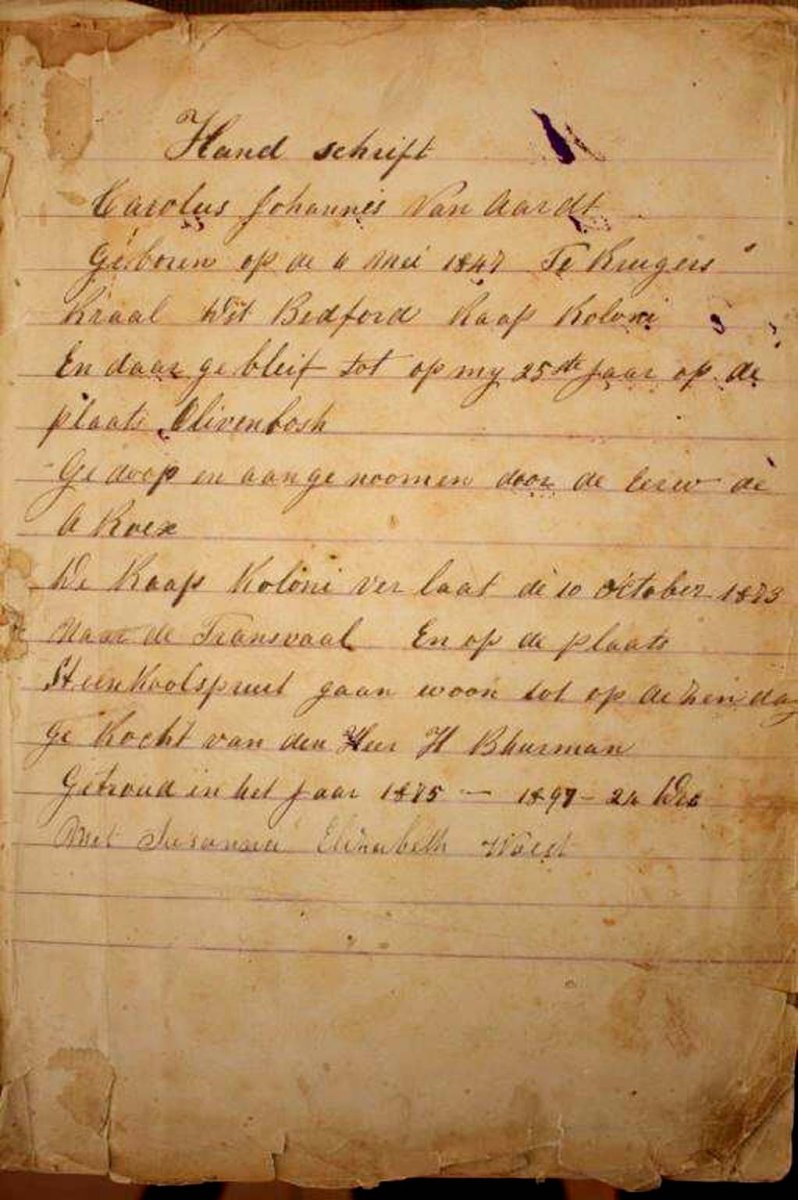 Hand schrift
Carolus Johannis Van Aardt
Geboren op de 4 Mei 1847 Te Krugers
Kraal Dist Bedford Kaap Koloni
En daar ge bleif tot op my 25ste Jaar op de
plaats Olivenbosh
Ge doop en aan ge noomen door de Eerw de
De Kaap Koloni ver laat de 10 October 1873
Naar de Transvaal En op de plaats
Steenkoolspruit gaan woon tot op de
ge Kocht van den Heer H Bhurman
Getroud in het Jaar 1875 — 1897 - 24 Dec
Met Elizabeth